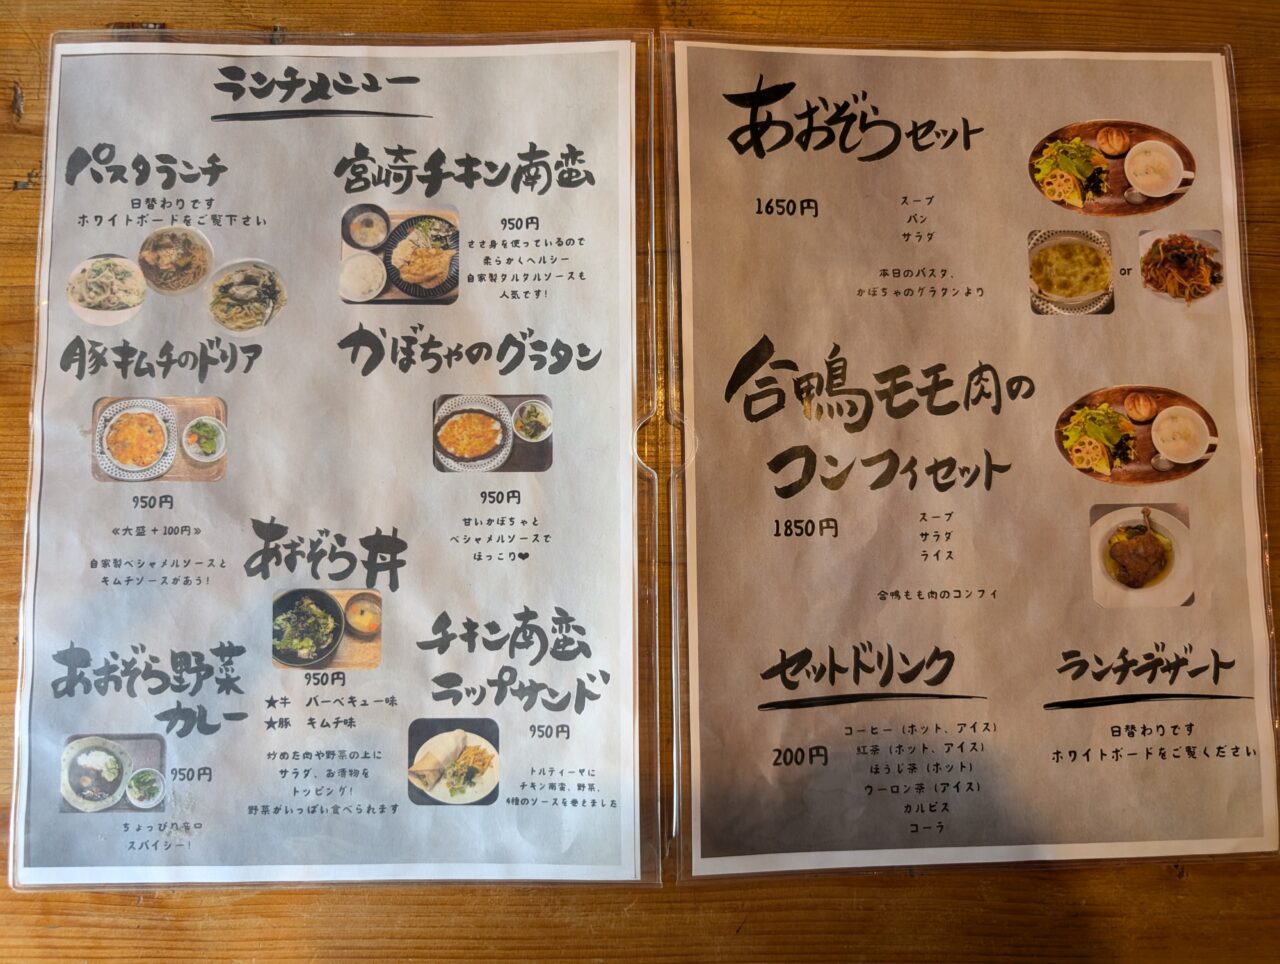 ランチメニュー
パスタランチ
日替わりです
ホワイトボードをご覧下さい
宮崎チキン南蛮
950円
ささ身を使っているので
柔らかくヘルシー
自家製タルタルソースも
人気です!
豚キムチのドリア
950円
≪大盛+100円≫
自家製ベシャメルソースと
キムチソースがあう!
かぼちゃのグラタン
950円
甘いかぼちゃと
ベシャメルソースで
ほっこり♥
あおぞら丼
950円
★牛 バーベキュー味
★豚 キムチ味
炒めた肉や野菜の上に
サラダ、お漬物を
トッピング!
野菜がいっぱい食べられます
あおぞら野菜
カレー
950円
ちょっぴり辛口
スパイシー!
チキン南蛮
ラップサンド
950円
トルティーヤに
チキン南蛮、野菜、
4種のソースを巻きました
あおぞらセット
1650円
スープ
パン
サラダ
本日のパスタ、
かぼちゃのグラタンより
or
合鴨モモ肉の
コンフィセット
1850円
スープ
サラダ
ライス
合鴨もも肉のコンフィ
セットドリンク
200円
コーヒー(ホット、アイス)
紅茶(ホット、アイス)
ほうじ茶(ホット)
ウーロン茶(アイス)
カルピス
コーラ
ランチデザート
日替わりです
ホワイトボードをご覧ください